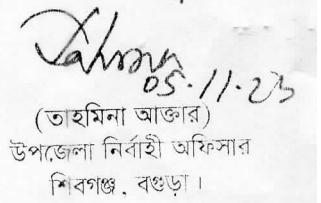 Tahmina
05.11.23
(তাহমিনা আক্তার)
উপজেলা নির্বাহী অফিসার
শিবগঞ্জ, বগুড়া।